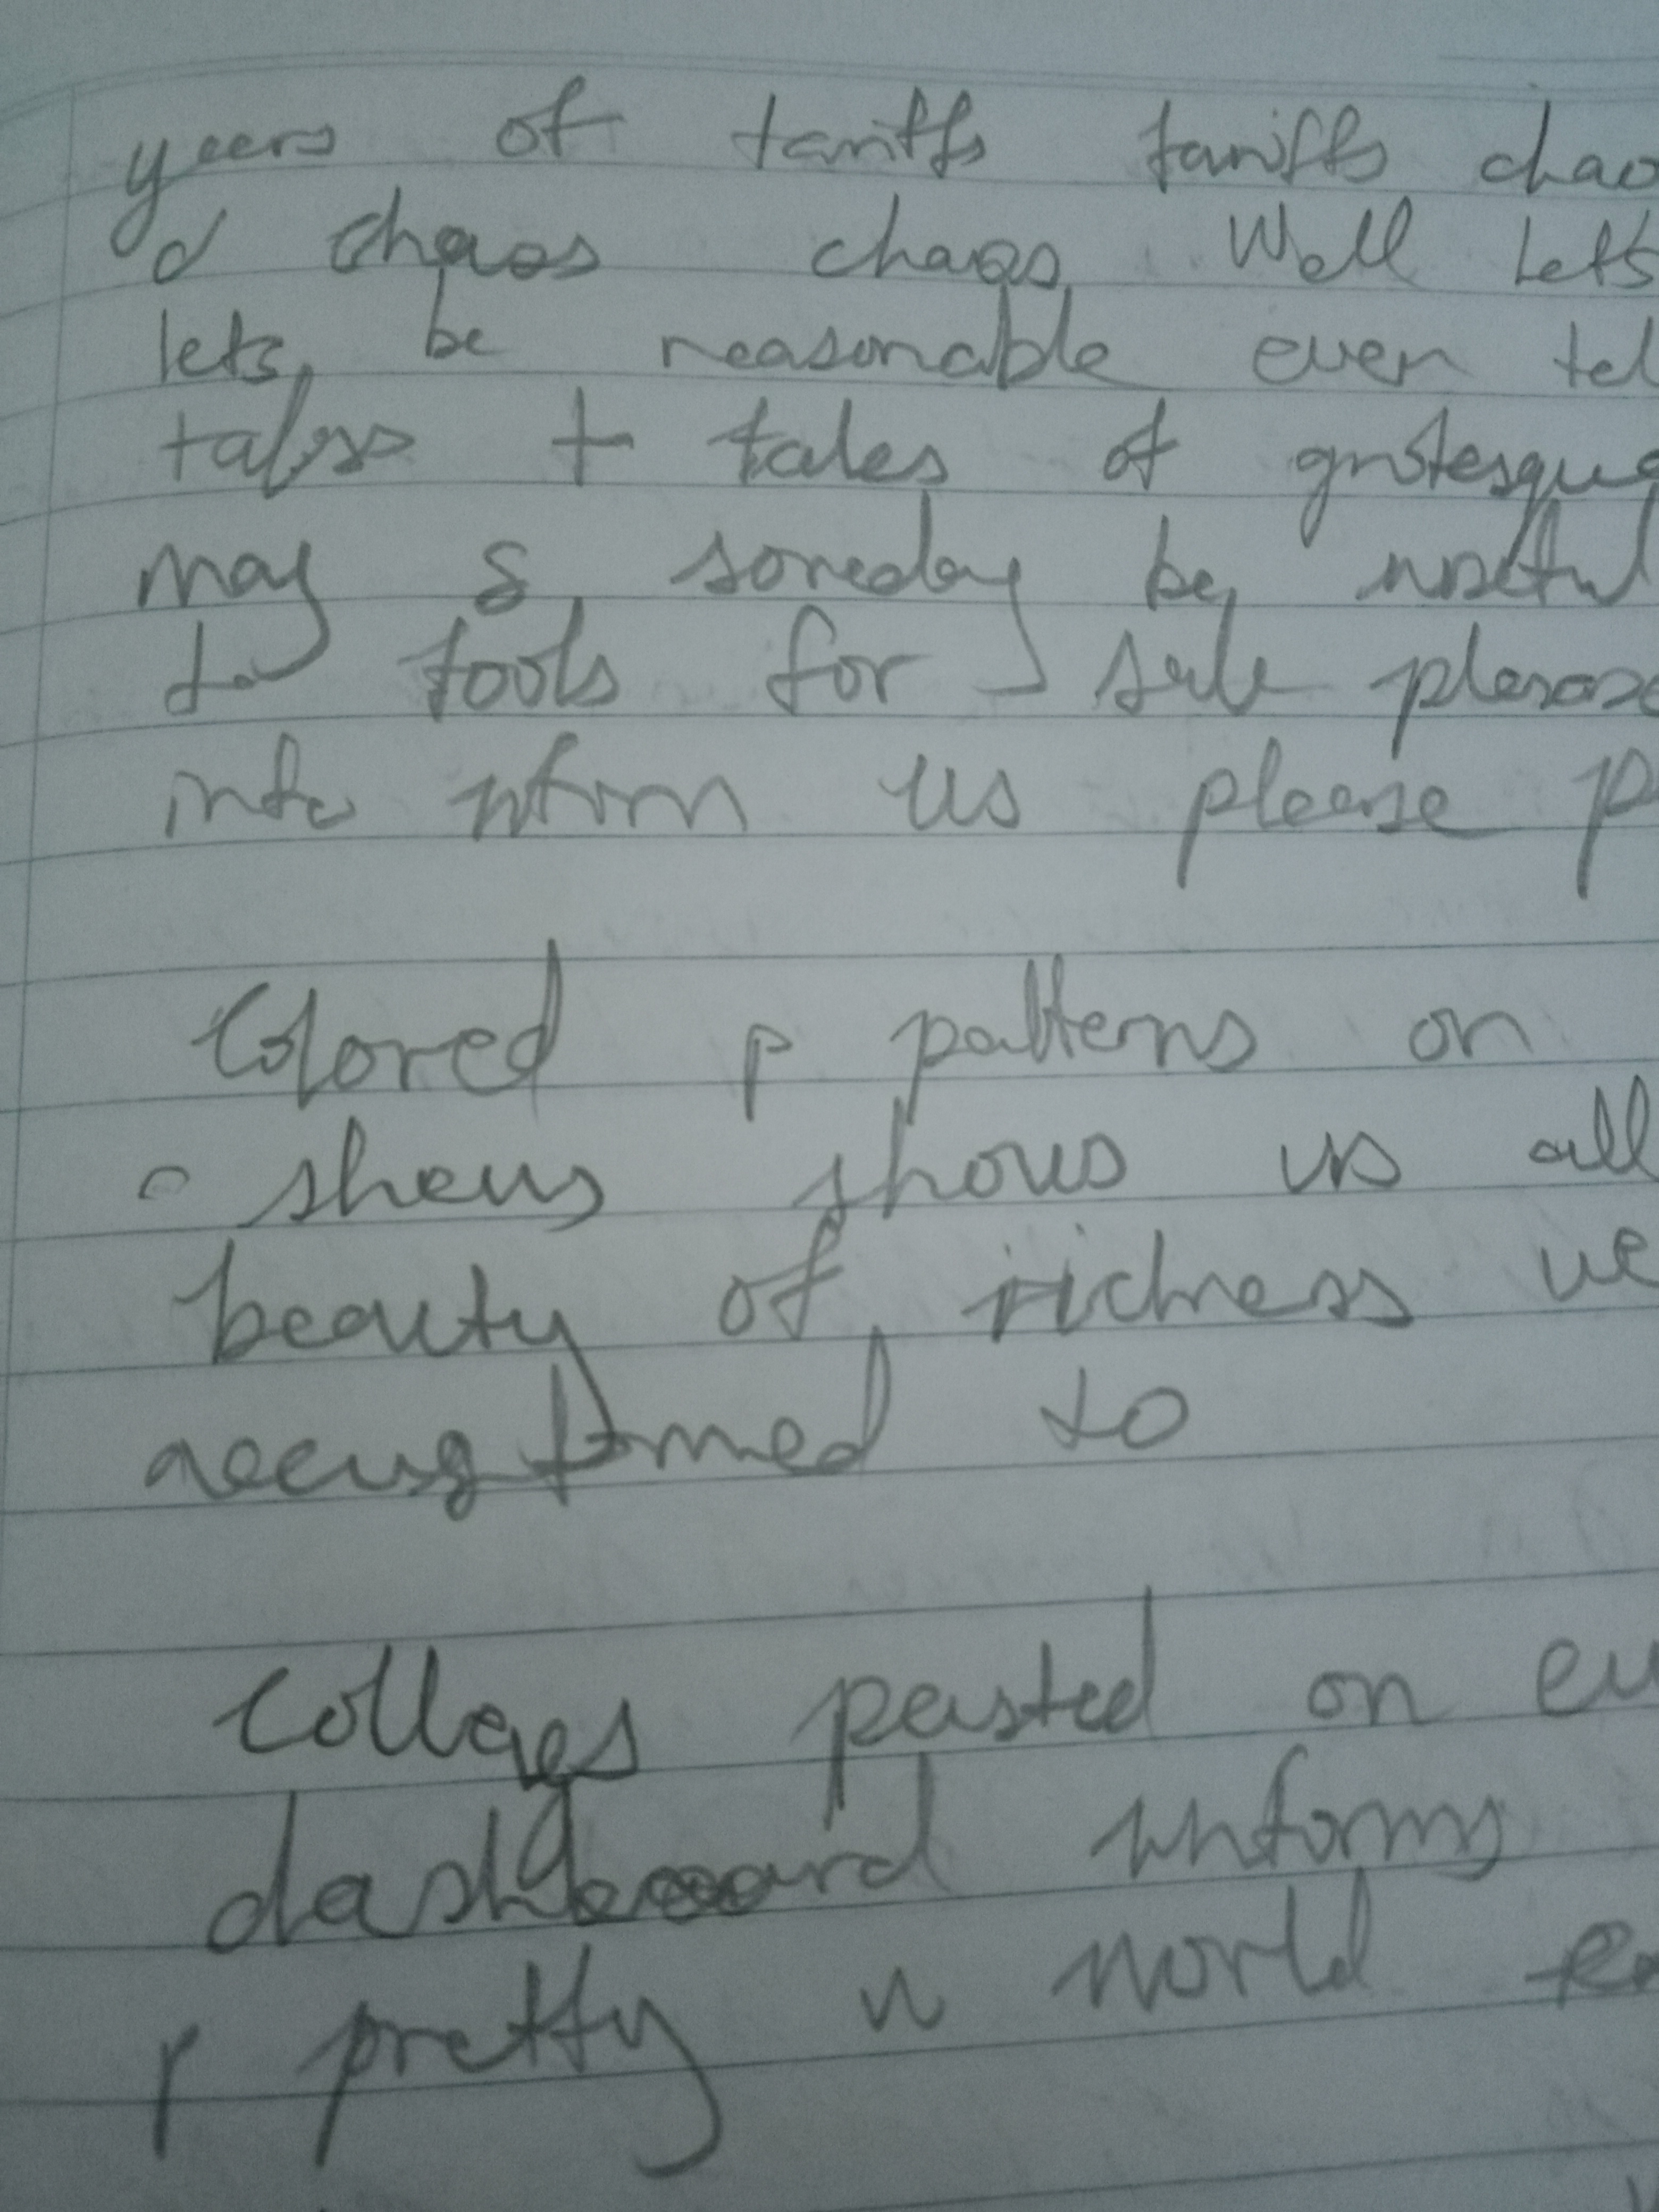 years of tariffs tariffs chao
d chaos chaos Well Let's
lets be reasonable even tel
tales + tales of grotesque
may s someday be useful
to tools for sale please
into inform us please p
Colored p patterns on
shows shows us all
beauty of richness we
accustomed to
Collages pasted on
dashboard informs
p pretty w world